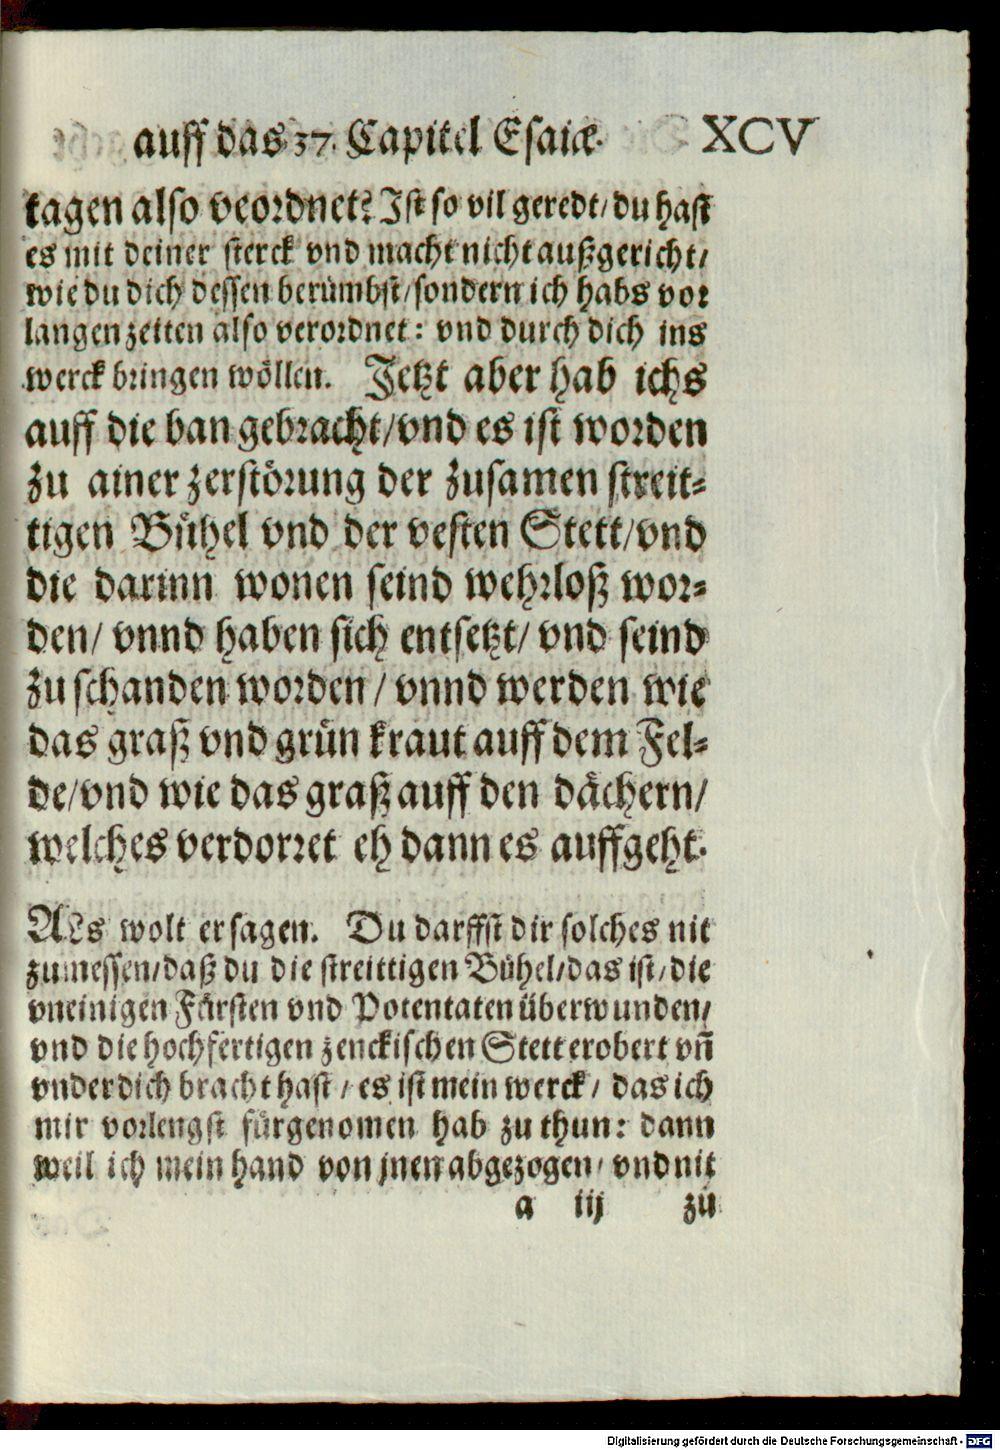 auff das 37. Capitel Esaiæ. XCV
tagen also veordnet? Ist so vil geredt/ du hast
es mit deiner sterck vnd macht nicht außgericht/
wie du dich dessen berümbst/ sondern ich habs vor
langen zeiten also verordnet: vnd durch dich ins
werck bringen wöllen. Jetzt aber hab ichs
auff die ban gebracht/ vnd es ist worden
zu ainer zerstörung der zusamen streit-
tigen Bühel vnd der vesten Stett/ vnd
die darinn wonen seind wehrloß wor-
den/ vnnd haben sich entsetzt/ vnd seind
zu schanden worden/ vnnd werden wie
das graß vnd grün kraut auff dem Fel-
de/ vnd wie das graß auff den dächern/
welches verdorret eh dann es auffgeht.
ALs wolt er sagen. Du darffst dir solches nit
zumessen/ daß du die streittigen Bühel/ das ist/ die
vneinigen Fürsten vnd Potentaten überwunden/
vnd die hochfertigen zenckischen Stett erobert vñ
vnder dich bracht hast/ es ist mein werck/ das ich
mir vorlengst fürgenomen hab zu thun: dann
weil ich mein hand von jnen abgezogen/ vnd nit
a iij zu
Digitalisierung gefördert durch die Deutsche Forschungsgemeinschaft - DFG